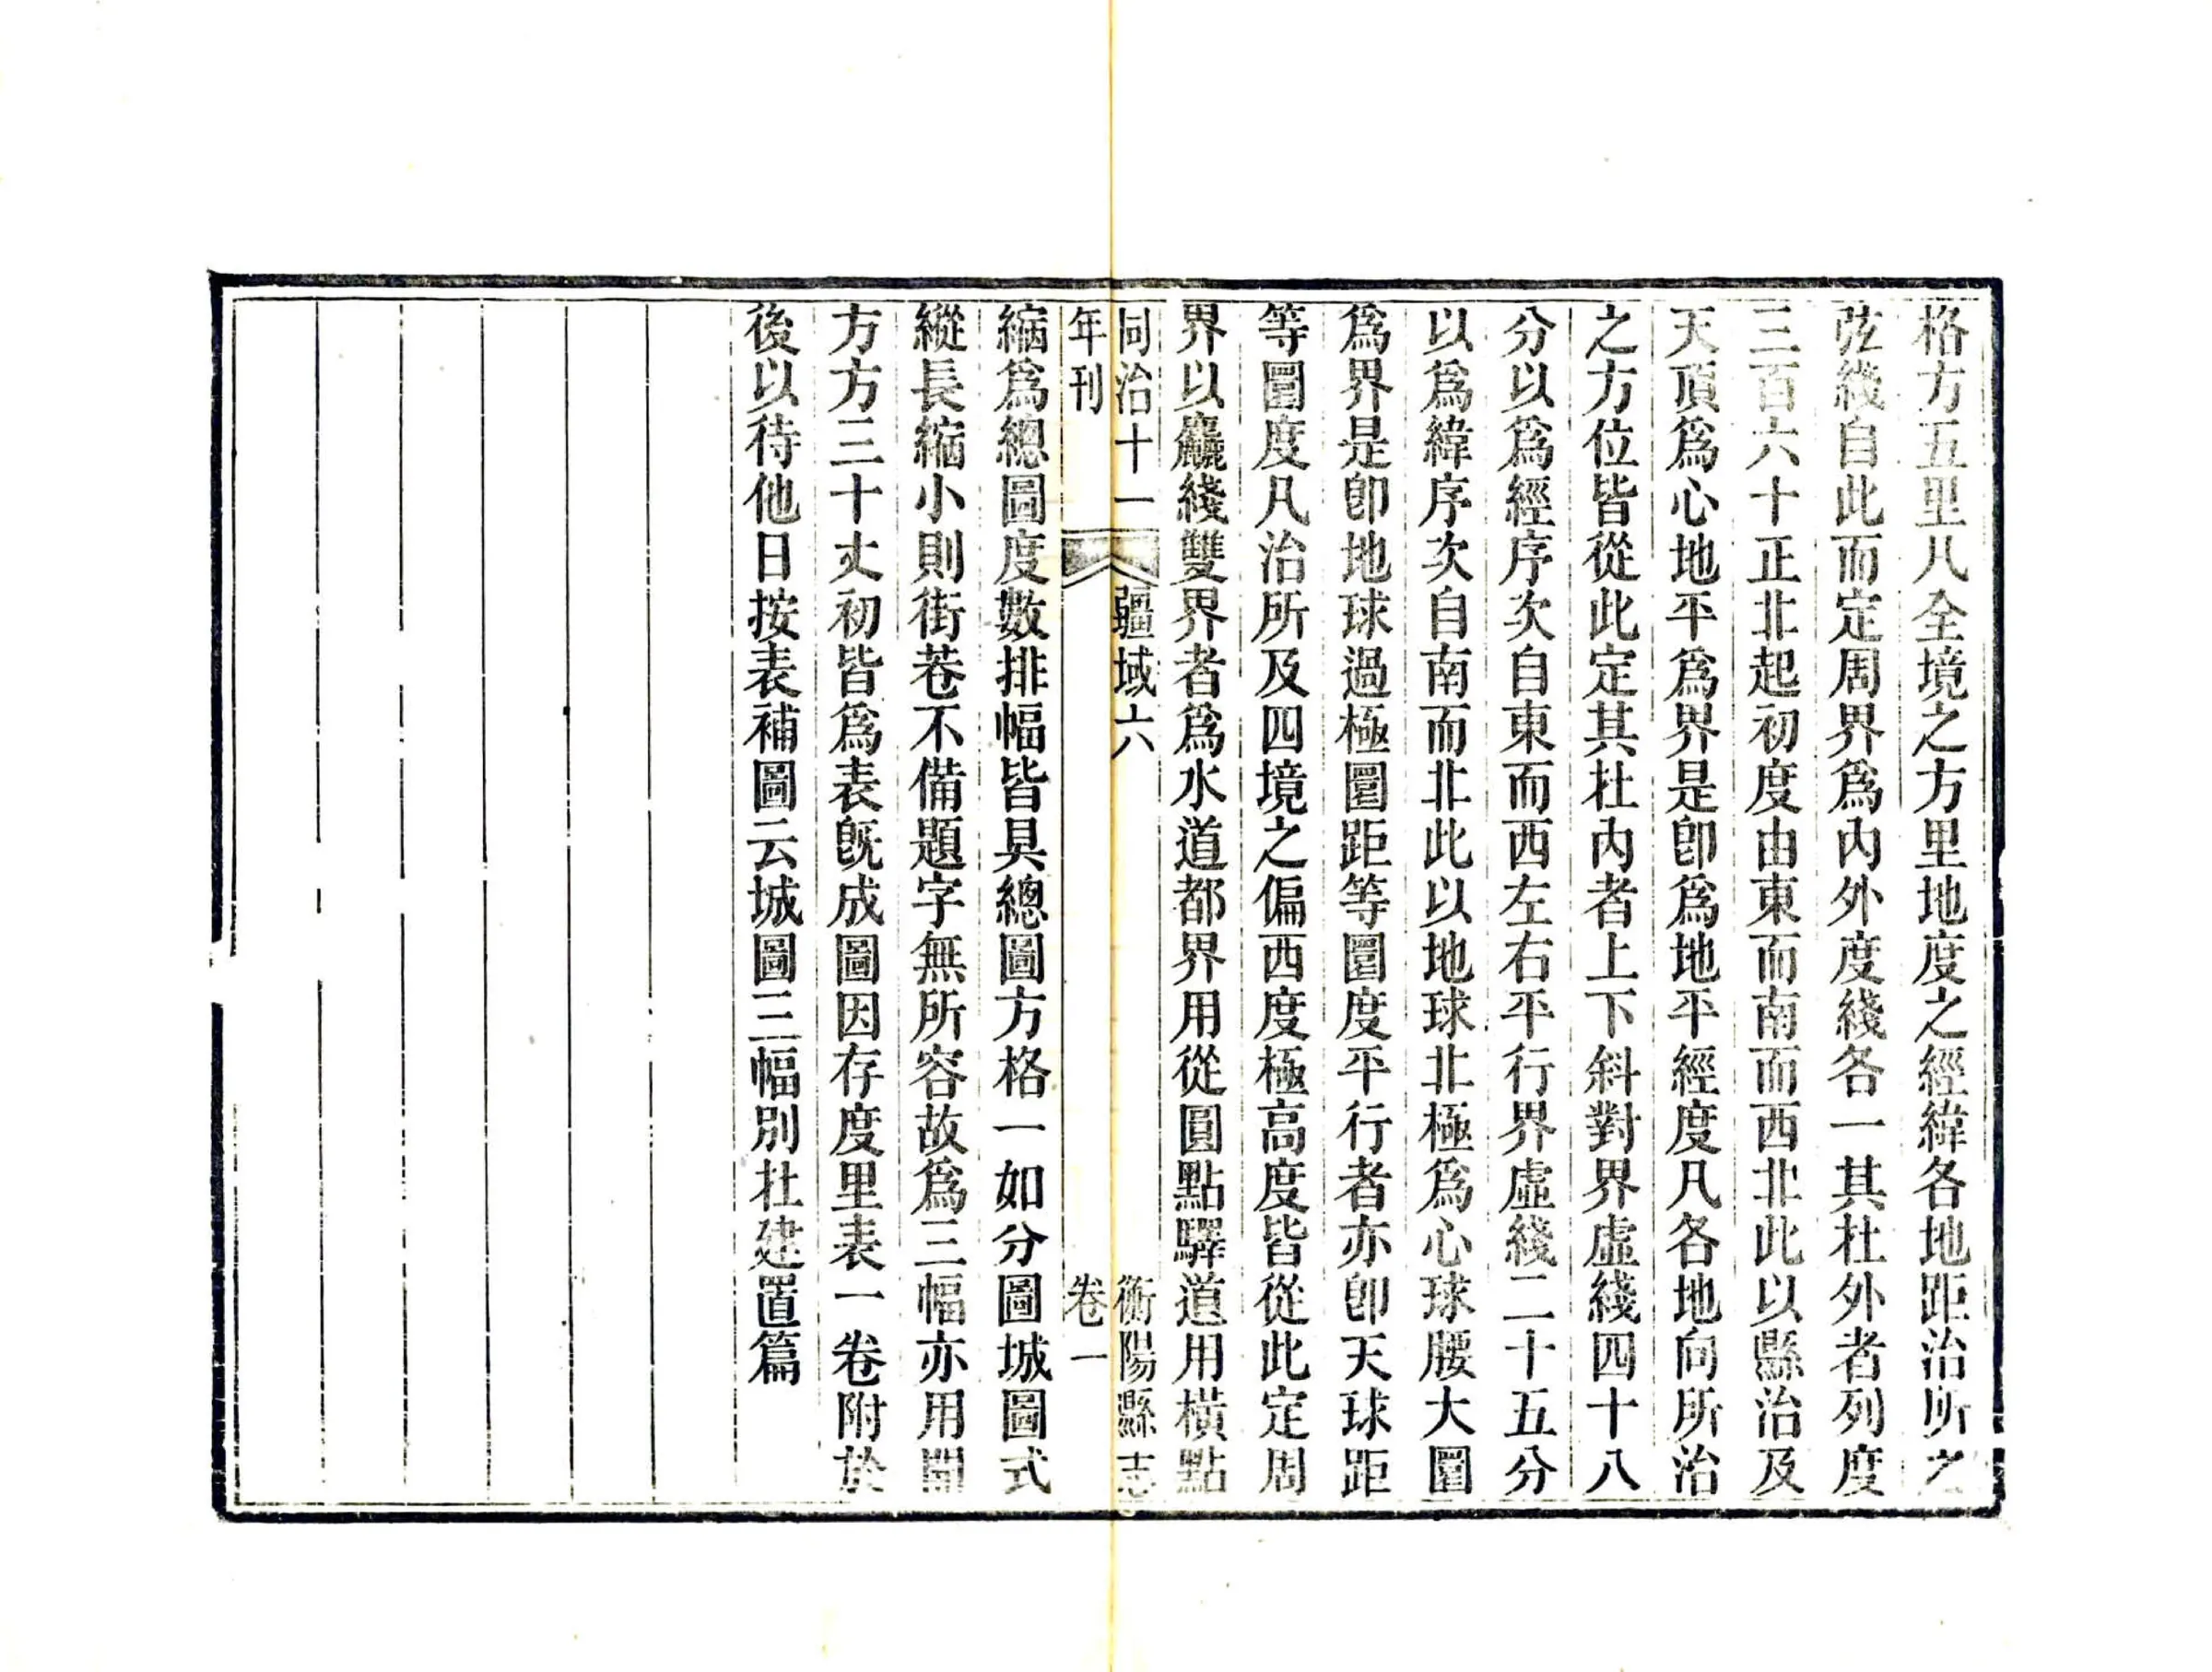 格方五里凡全境之方里地度之經緯各地距治所之
弦綫自此而定周界爲內外度綫各一其在外者列度
三百六十正北起初度由東而南而西北此以縣治及
天頂爲心地平爲界是卽爲地平經度凡各地向所治
之方位皆從此定其在內者上下斜對界虛綫四十八
分以爲經序次自東而西左右平行界虛綫二十五分
以爲緯序次自南而北此以地球北極爲心球腰大圜
爲界是卽地球過極圜距等圜度平行者亦卽天球距
等圜度凡治所及四境之偏西度極高度皆從此定周
界以麤綫雙界者爲水道都界用從圓點驛道用橫點
同治十一
年刊
疆域六
衡陽縣志
卷一
縮爲總圖度數排幅皆具總圖方格一如分圖城圖式
縱長縮小則街巷不備題字無所容故爲三幅亦用開
方方三十丈初皆爲表旣成圖因存度里表一卷附於
後以待他日按表補圖云城圖三幅別在建置篇